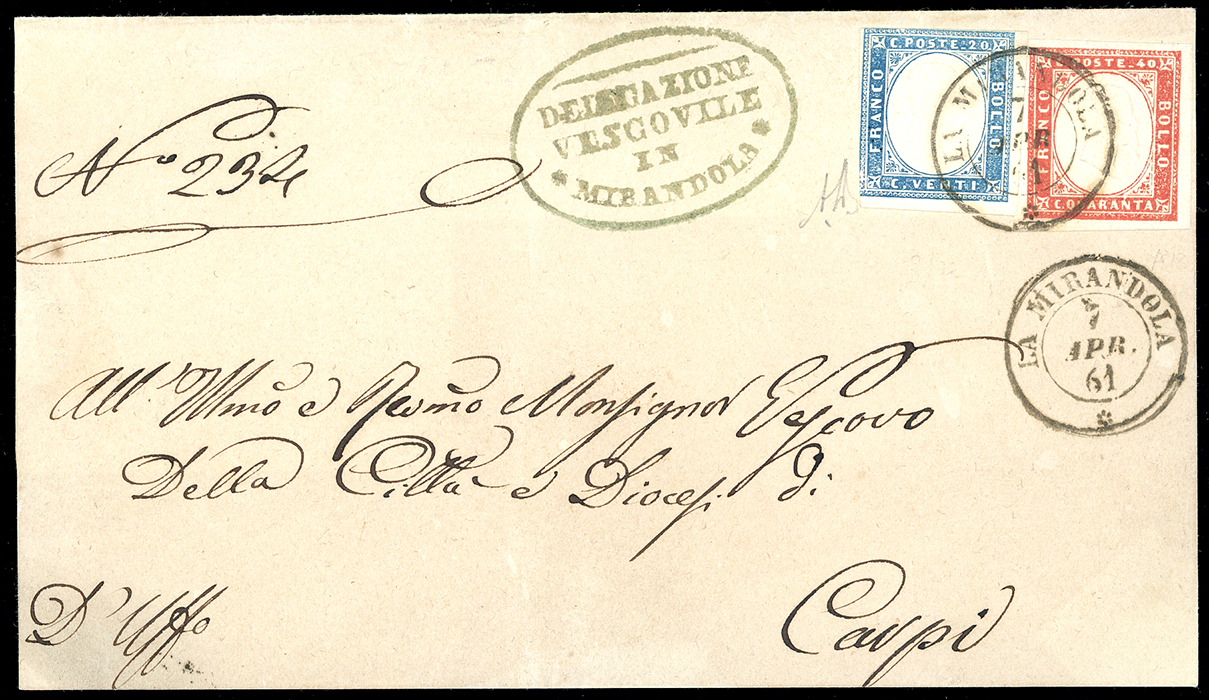 N.º 234
DELEGAZIONE
VESCOVILE
IN
* MIRANDOLA *
C. POSTE. 20.
FRANCO
BOLLO
C. VENTI
C. POSTE. 40.
FRANCO
BOLLO
C. QUARANTA
LA MIRANDOLA
7
APR
61
LA MIRANDOLA
7
APR.
61
All' Illmo e Revmo Monsignor Vescovo
Della Città e Diocesi di
Carpi
D'Uffo